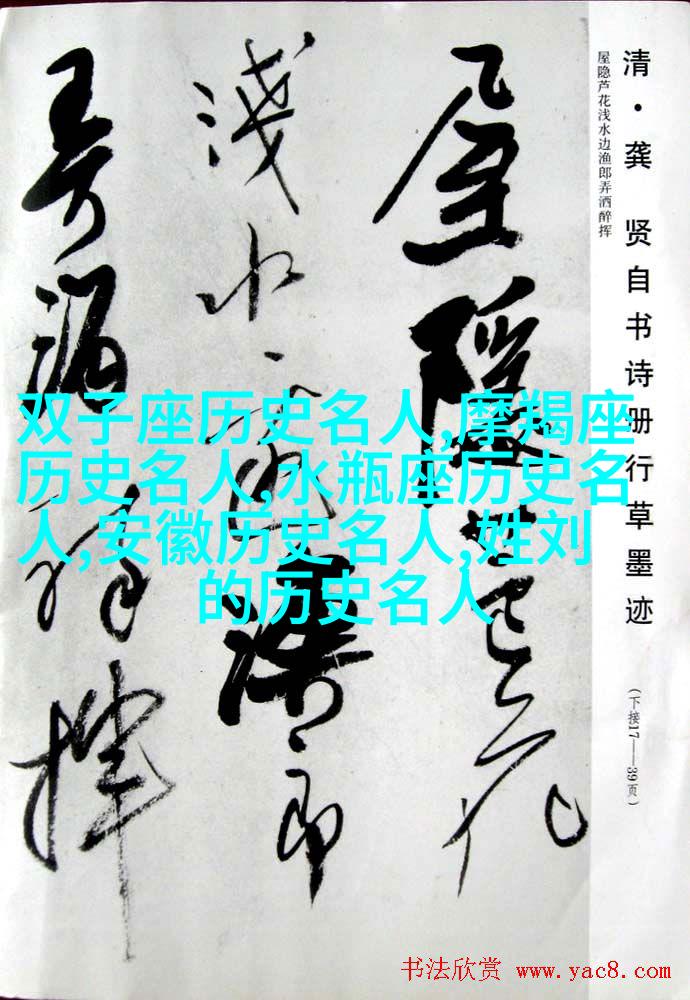 清·龚 贤自书诗册行草墨迹
屋隐芦花浅水边渔郎弄酒醉挥
(下接17——39页)
屋隐芦花
浅水边渔郎
弄酒醉挥
双子座历史名人,摩羯座
历史名人,水瓶座历史名
人,安徽历史名人,姓刘
的历史名人
书法欣赏 www.yac8.com